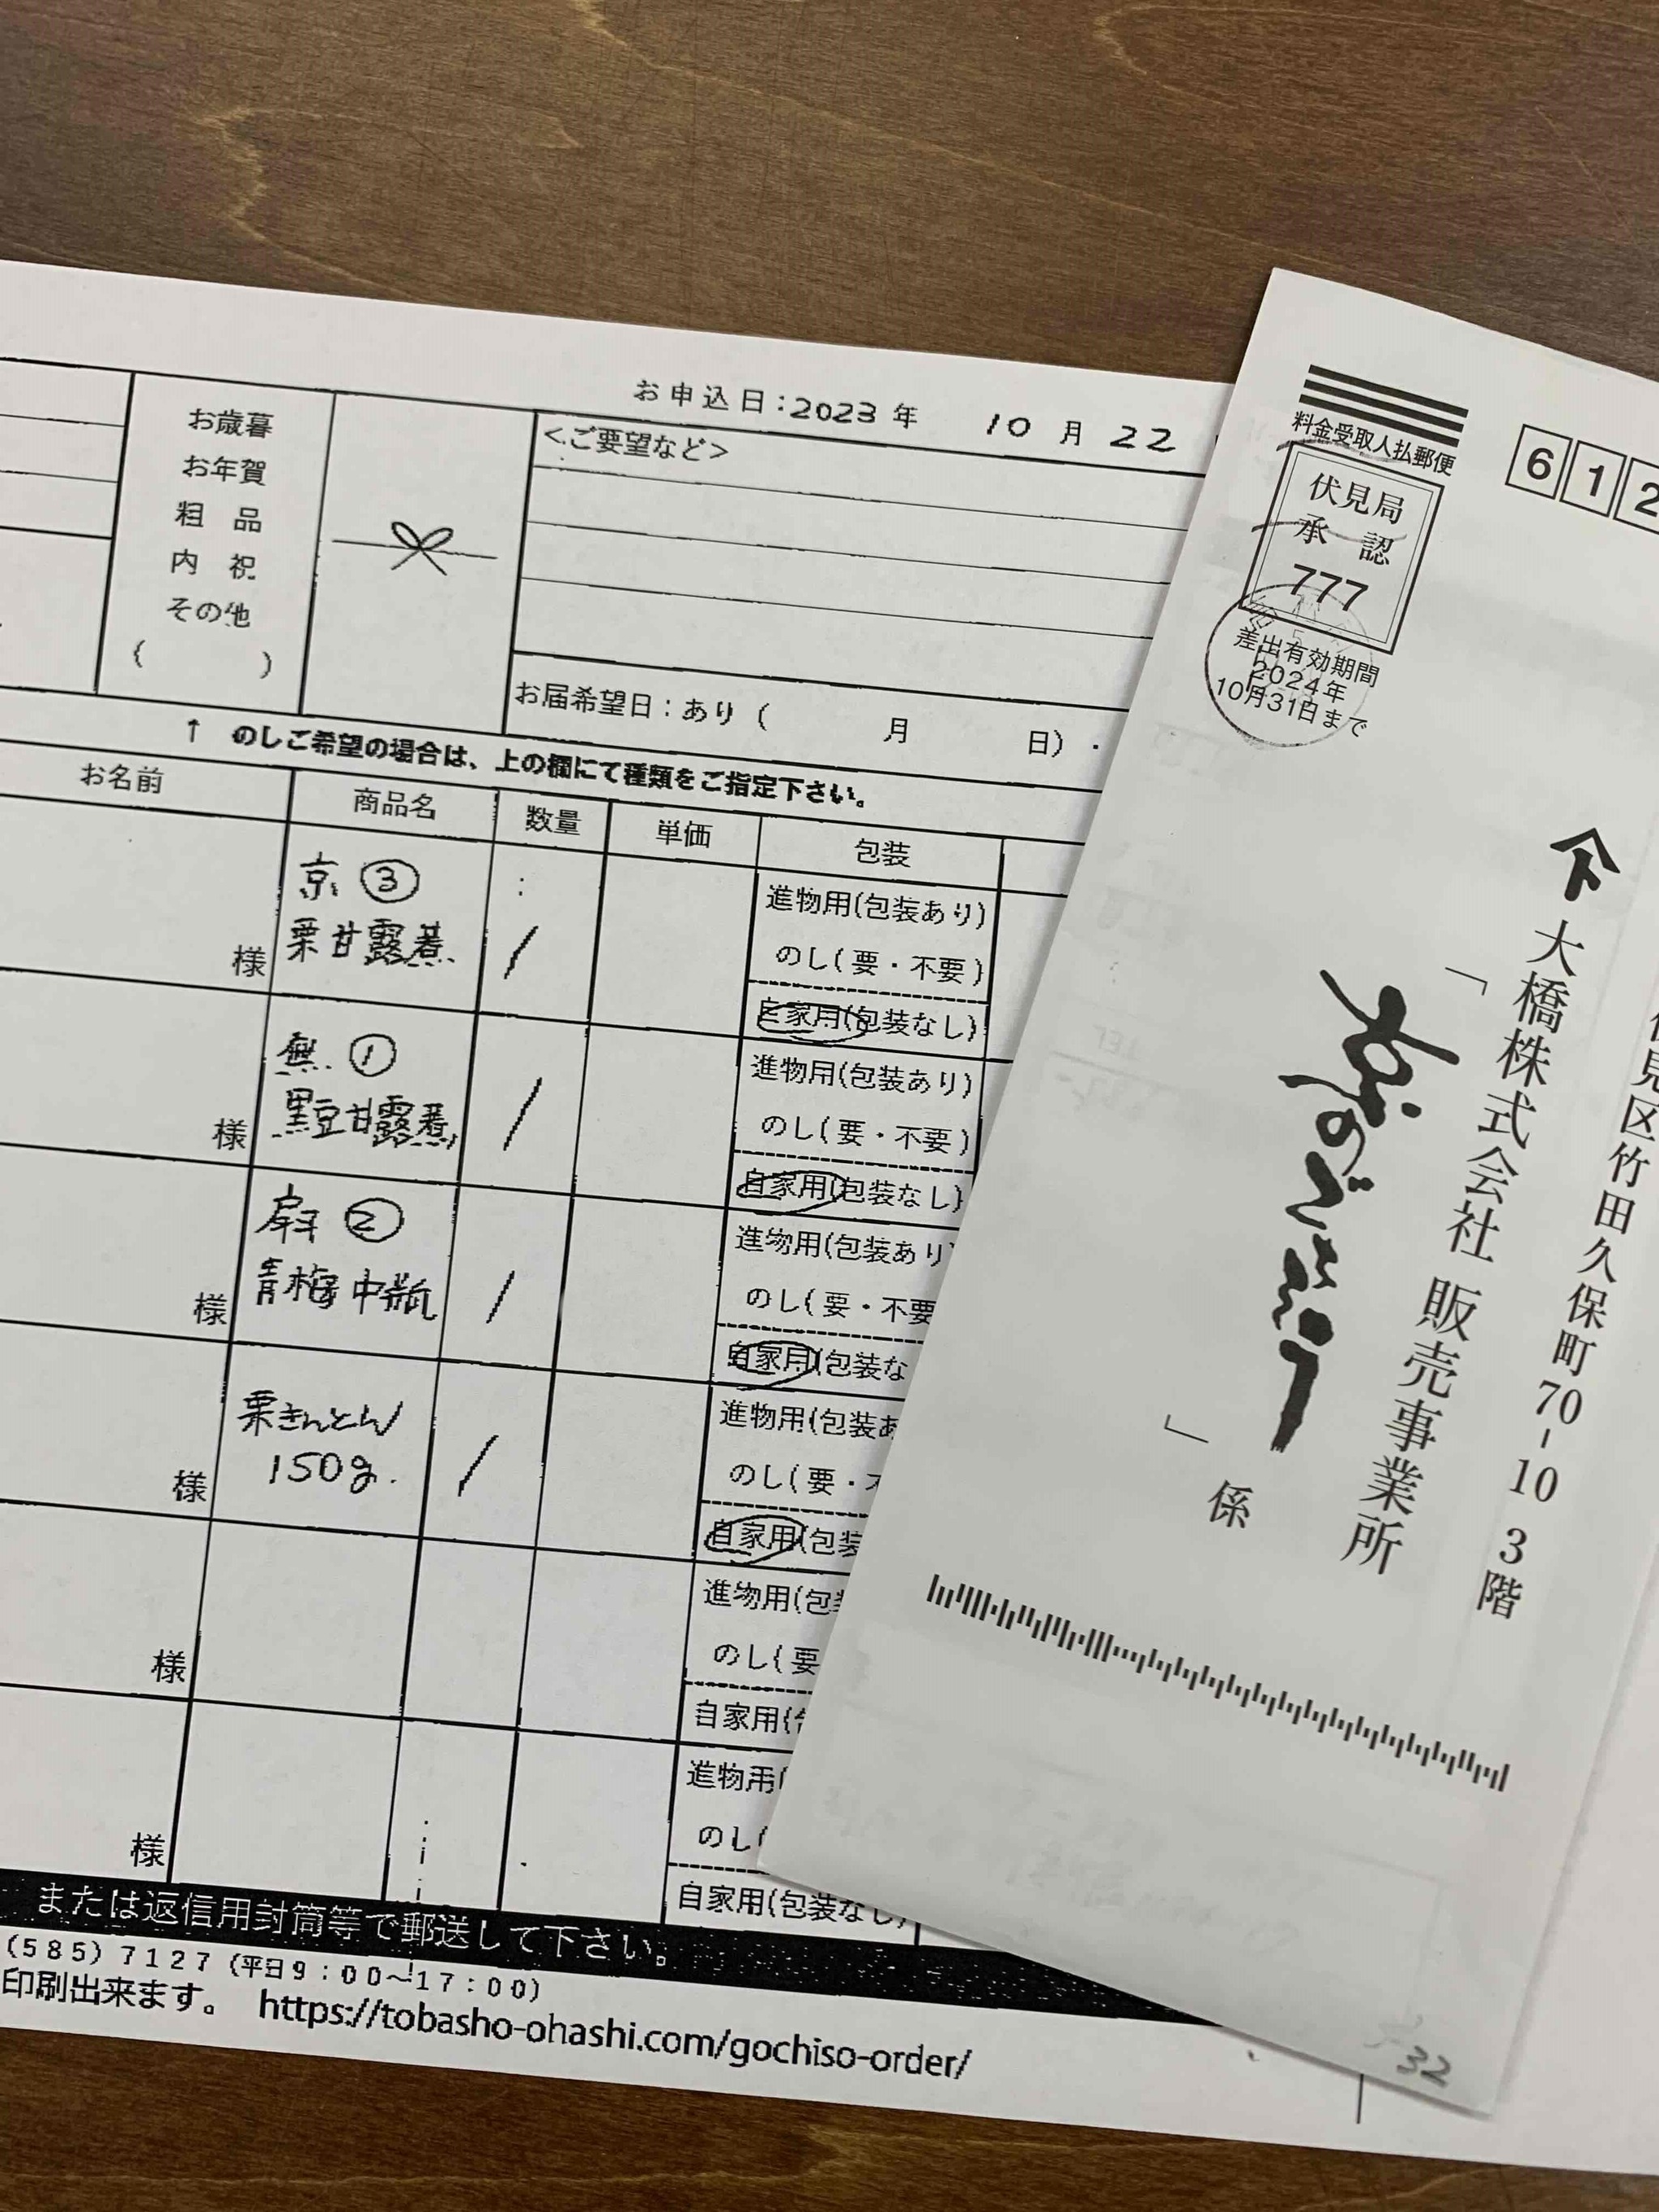 お申込日:2023年 10月22
お歳暮
お年賀
粗 品
内 祝
その他
( )
<ご要望など>
お届希望日:あり( 月 日)・
↑ のしご希望の場合は、上の欄にて種類をご指定下さい。
お名前 商品名 数量 単価 包装
様
京③
栗甘露煮
1
進物用(包装あり)
のし(要・不要)
自家用(包装なし)
様
無①
黒豆甘露煮
1
進物用(包装あり)
のし(要・不要)
自家用(包装なし)
様
②
青梅中瓶
1
進物用(包装あり)
のし(要・不要
自家用(包装な
様
栗きんとん
150g.
1
進物用(包装あ
のし(要・不
自家用(包装
様
進物用(包装
のし(要
自家用(
様
進物用(
のし(
自家用(包装なし)
または返信用封筒等で郵送して下さい。
(585)7127(平日9:00~17:00)
印刷出来ます。 https://tobasho-ohashi.com/gochiso-order/
料金受取人払郵便
伏見局
承 認
777
差出有効期間
2024年
10月31日まで
612
伏見区竹田久保町70-10 3階
大橋株式会社 販売事業所
「京のごちそう」係
32